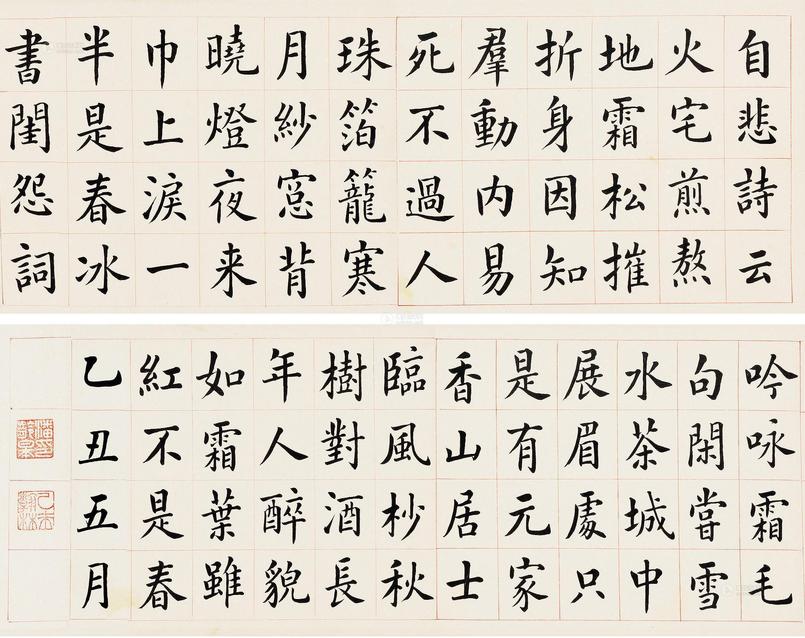 自悲詩云
火宅煎熬
地霜松摧
折身因知
羣動内易
死不過人
珠箔籠寒
月紗窓背
曉燈夜来
巾上淚一
半是春冰
書閨怨詞
吟咏霜毛
句閑嘗雪
水茶城中
展眉處只
是有元家
香山居士
臨風杪秋
樹對酒長
年人醉貌
如霜葉雖
紅不是春
乙丑五月